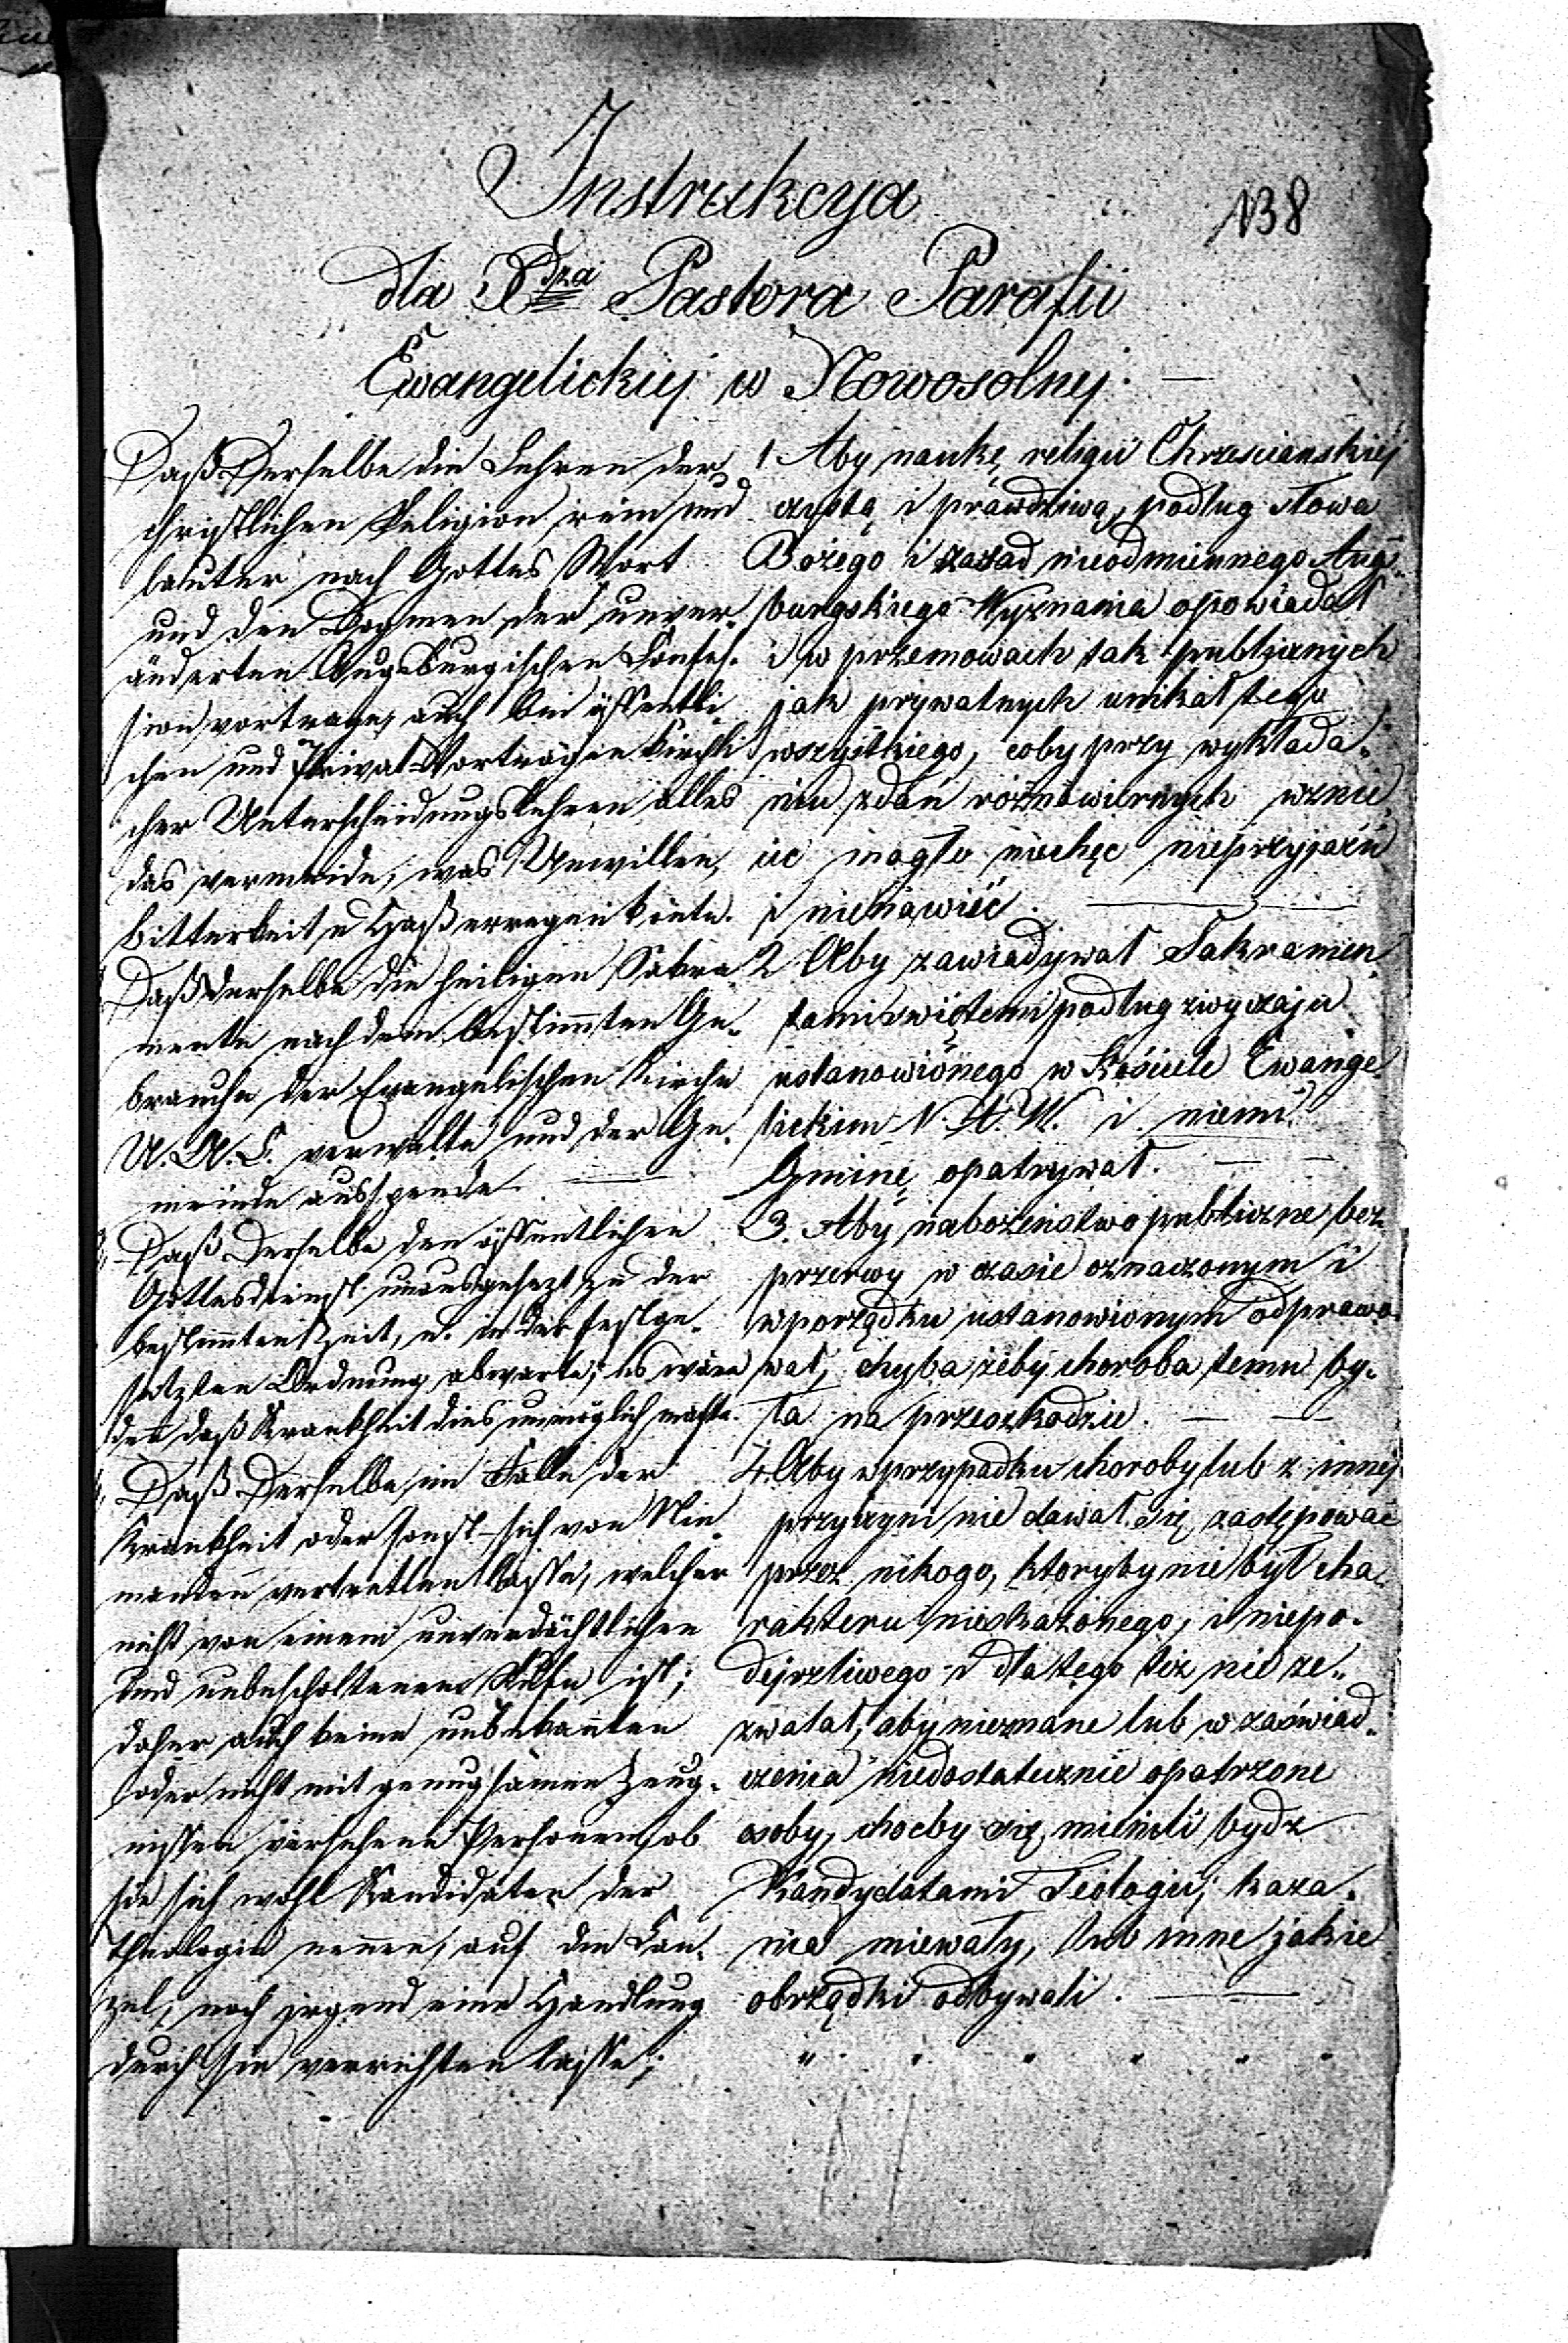 138
Instrukcya
dla Xdza Pastora Parafii
Ewangelickiej w Nowosolnej. —
Daß Derselbe die Lehren der
christlichen Religion rein und
lauter nach Gottes Wort
und den Dogmen der unver-
änderten Augsburgischen Confes-
sion vortrage, auch bei öffentli
chen und Privat Vorträgen kirchli
cher Unterscheidungslehren alles
das vermeide, was Unwillen,
Bitterkeit u Haß erregen könte.
Daß derselbe die heiligen Sakra
mente nach dem bestimmten Ge-
brauche der Evangelischen Kirche
U. A. C. verwalte und der Ge-
meinde ausspende. —
Daß Derselbe den öffentlichen
Gottesdienst unausgesezt zu der
bestimmten Zeit, u. in der festge-
setzten Ordnung abwarte; es wäre
den daß Krankheit dies unmöglich machte.
Daß Derselbe im Falle der
Krankheit oder sonst sich von Nie
manden vertretten lasse, welcher
nicht von einem unverdächtlichen
und unbescholtenen Rufe ist;
daher auch keine unbekannten
oder nicht mit genugsamen Zeug-
nissen versehene Personen, ob
sie sich wohl Kandidaten der
Theologie nennen, auf die Can-
zel, noch irgend eine Handlung
durch sie verrichten lasse;
1 Aby naukę religii Chrzescianskiej
czystą i prawdziwą, podług słowa
Bożego i zasad nieodmiennego Aug-
burgskiego Wyznania opowiadał
i w przemowach tak publicznych
jak prywatnych unikał tego
wszystkiego, coby przy wykłada-
niu zdań różnowiernych wznie
cić mogło niechęc nieprzyjaźń
i nienawiść. —
2 Aby zawiadywał Sakramen-
tami świętemi podług zwyczaju
ustanowionego w Kościele Ewange-
lickim N. A. W. i niemi
Gminę opatrywał. — —
3. Aby nabożeństwo publiczne bez
przerwy w czasie oznaczonym i
w porządku ustanowionym odprawo-
wał, chyba żeby choroba temu by-
ła na przeszkodzie. — —
4. Aby w przypadku choroby lub z innej
przyczyni nie dawał się zastępować
przez nikogo, ktoryby nie był cha-
rakteru nieskażonego, i niepo-
dejrzliwego i dla tego też nie ze-
zwalał, aby nieznane lub w zaświad-
czenia niedostatecznie opatrzone
osoby, choćby się mienili bydz
Kandydatami Teologii, kaza-
nia miewały, lub inne jakie
obrządki odbywali. —
" " " " " "